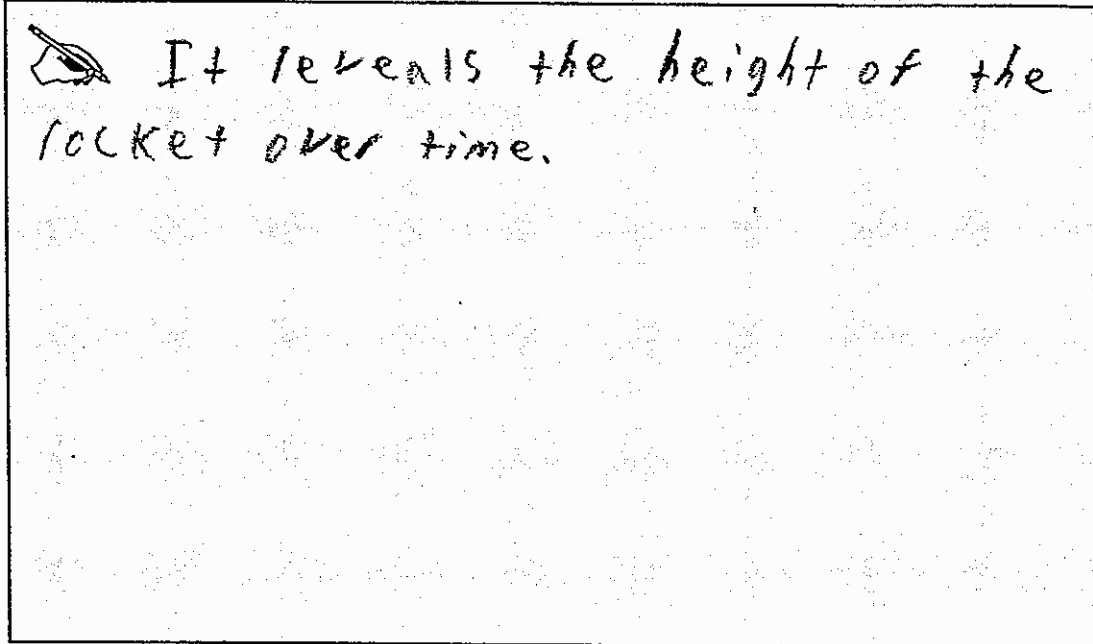 It reveals the height of the
rocket over time.